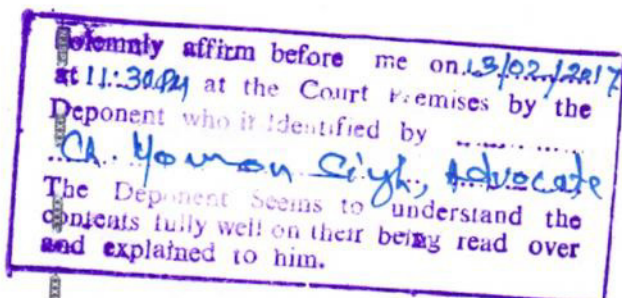 Solemnly affirm before me on 13/02/2017
at 11:30 AM at the Court Premises by the
Deponent who is Identified by ...............
Ch. Momon Singh, Advocate
The Deponent Seems to understand the
contents fully well on their being read over
and explained to him.